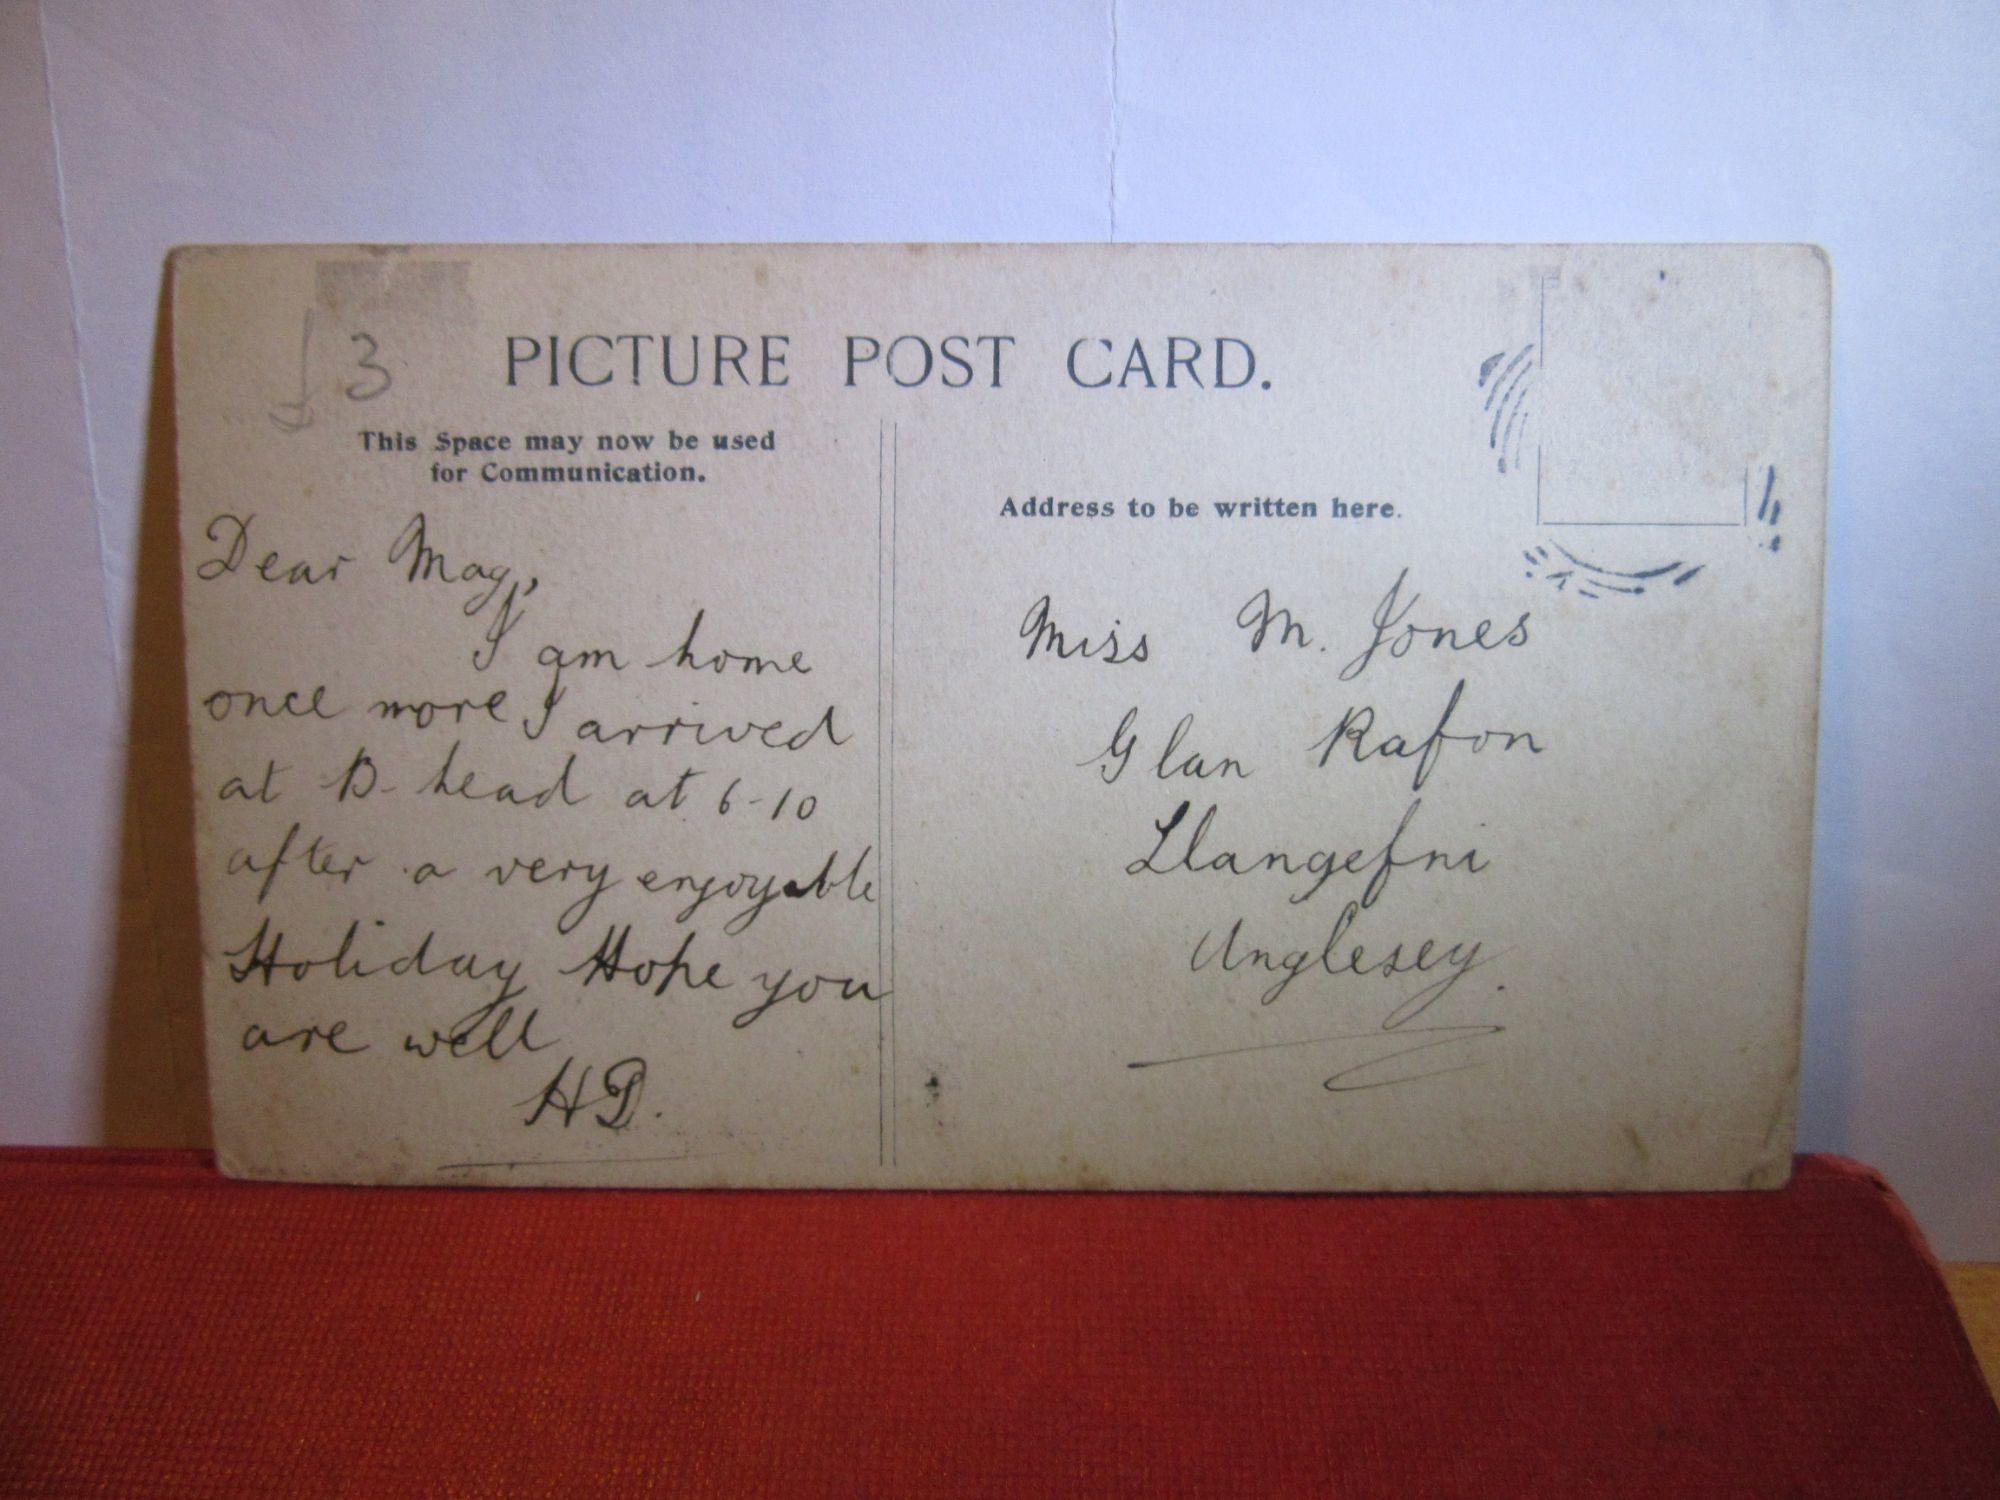 3
PICTURE POST CARD.
This Space may now be used
for Communication.
Dear Mag,
I am home
once more I arrived
at B-head at 6-10
after a very enjoyable
Holiday Hope you
are well
HD.
Address to be written here.
Miss M. Jones
Glan Rafon
Llangefni
Anglesey.